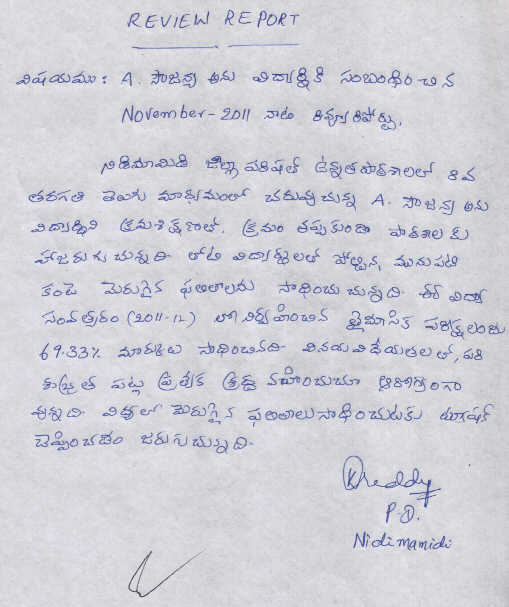 REVIEW REPORT
విషయము: A. సౌజన్య అను విద్యార్థికి సంబంధించిన
November-2011 నాటి రివ్యూ రిపోర్టు.
నిడిమామిడి జిల్లా పరిషత్ ఉన్నత పాఠశాలలో 8వ
తరగతి తెలుగు మాధ్యమంలో చదువుచున్న A. సౌజన్య అను
విద్యార్థిని క్రమశిక్షణతో, క్రమం తప్పకుండా పాఠశాలకు
హాజరుగుచున్నది. తోటి విద్యార్థులతో పోల్చిన, మునుపటి
కంటె మెరుగైన ఫలితాలను సాధించుచున్నది. ఈ విద్యా
సంవత్సరం (2011-12) లో నిర్వహించిన త్రైమాసిక పరీక్షలందు
69.33% మార్కులు సాధించినది. వినయ విధేయతలతో, పరి
శుభ్రత పట్ల ప్రత్యేక శ్రద్ధ వహించుచూ ఆరోగ్యంగా
ఉన్నది. విద్యలో మెరుగైన ఫలితాలు సాధించుటకు ట్యూషన్
చెప్పించడం జరుగుచున్నది.
Kreddy
P.D.
Nidimamidi